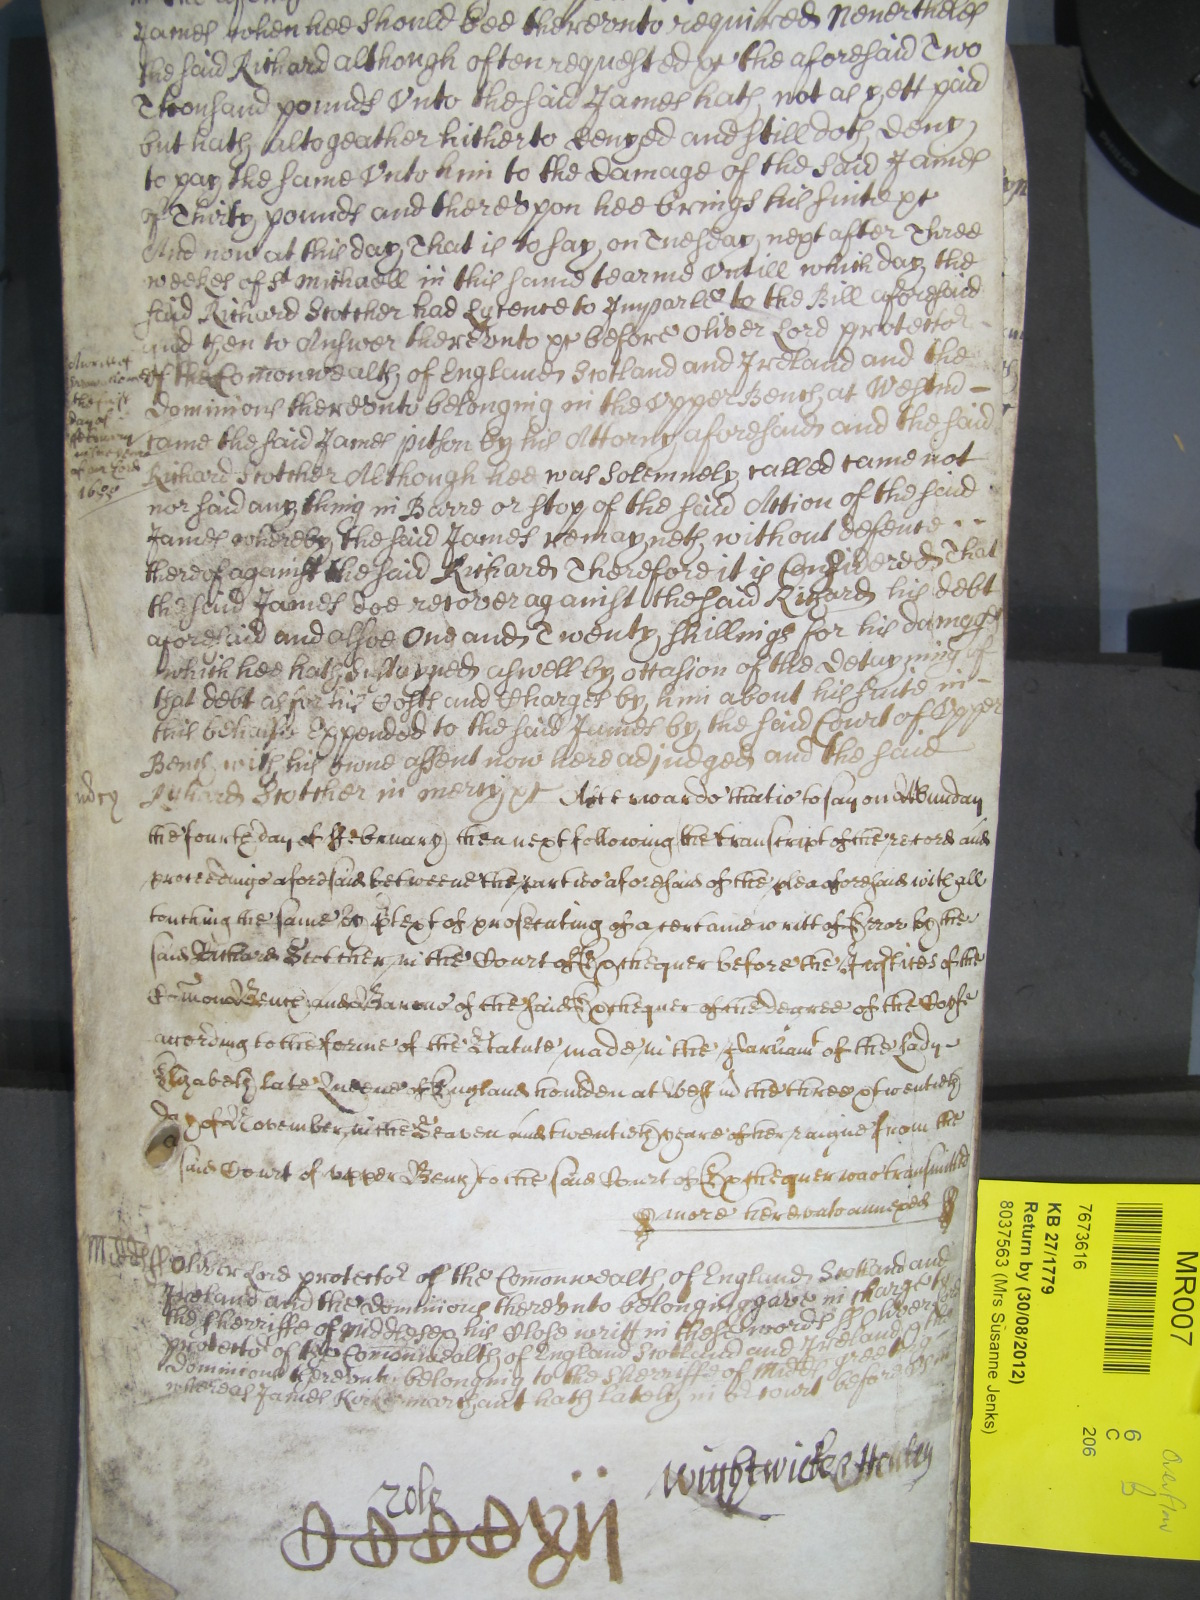 James when hee should bee therevnto required Neverthelesse
the said Richard although often requested &c the aforesaid Two
Thousand pounds Vnto the said James hath not as yett paid
but hath altogeather hitherto denyed and still doth deny
to pay the same Vnto him to the damage of the said James
of Thirty pounds and therevpon hee brings his suite &c
And now at this day That is to say on Tuesday next after Three
weekes of St Michaell in this same tearme Vntill which day the
said Richard Stotcher had Lycence to Imparle to the Bill aforesaid
and then to Answer therevnto &c before Oliver Lord protector
of the Comonwealth of England Scotland and Ireland and the
dominions therevnto belonging in the Vpper Bench at Westm
came the said James pitson by his Attorny aforesaid and the said
Richard Stotcher Although hee was Solemnely called came not
nor said any thing in Barre or stop of the said Action of the said
James whereby the said James remayneth without defence
thereof against the said Richard Therefore it is Considered That
the said James doe recover against the said Richard his debt
aforesaid and alsoe One and Twenty shillings for his damages
which hee hath Sustayned aswell by occasion of the detayning of
that debt as for his Costs and Charges by him about his suite in
this behalfe Expended to the said James by the said Court of Vpper
Bench with his owne assent now here adjudged and the said
Richard Stotcher in mercy &c Afterwards that is to say on Munday
the fourth day of February then next following the transcript of the record and
proceedings aforesaid betweene the parties aforesaid of the plea aforesaid with all
touching the same by p'text of prosecuting of a certaine writt of Error by the
said Richard Stotcher in the Court of Exchequer before the Justices of the
Comon Bench and Barons of the said Exchequer of the degree of the Coyfe
according to the forme of the Statute made in the Parliamt of the Lady
Elizabeth late Queene of England houlden at Westm the three & twentieth
day of November in the Seaven and twentieth yeare of her raigne from the
said Court of vpper Bench to the said Court of Exchequer was transmitted
more herevnto annexed
1655
mercy
Midds ss Oliver Lord protector of the Comonwealth of England Scotland and
Ireland and the dominions therevnto belonging gave in charge to
the Sherriffe of Middlesex his Close writt in these words ss Oliver Lord
protector of the Comonwealth of England Scotland and Ireland & the
dominions therevnto belonging to the Sherriffe of Midds greeting
whereas James marchant hath lately in or court before
Wightwicke & Henley
rolls
xij
MR007
7673616
KB 27/1779
Return by (30/08/2012)
8037563 (Mrs Susanne Jenks)
6
C
206
Overflow
B